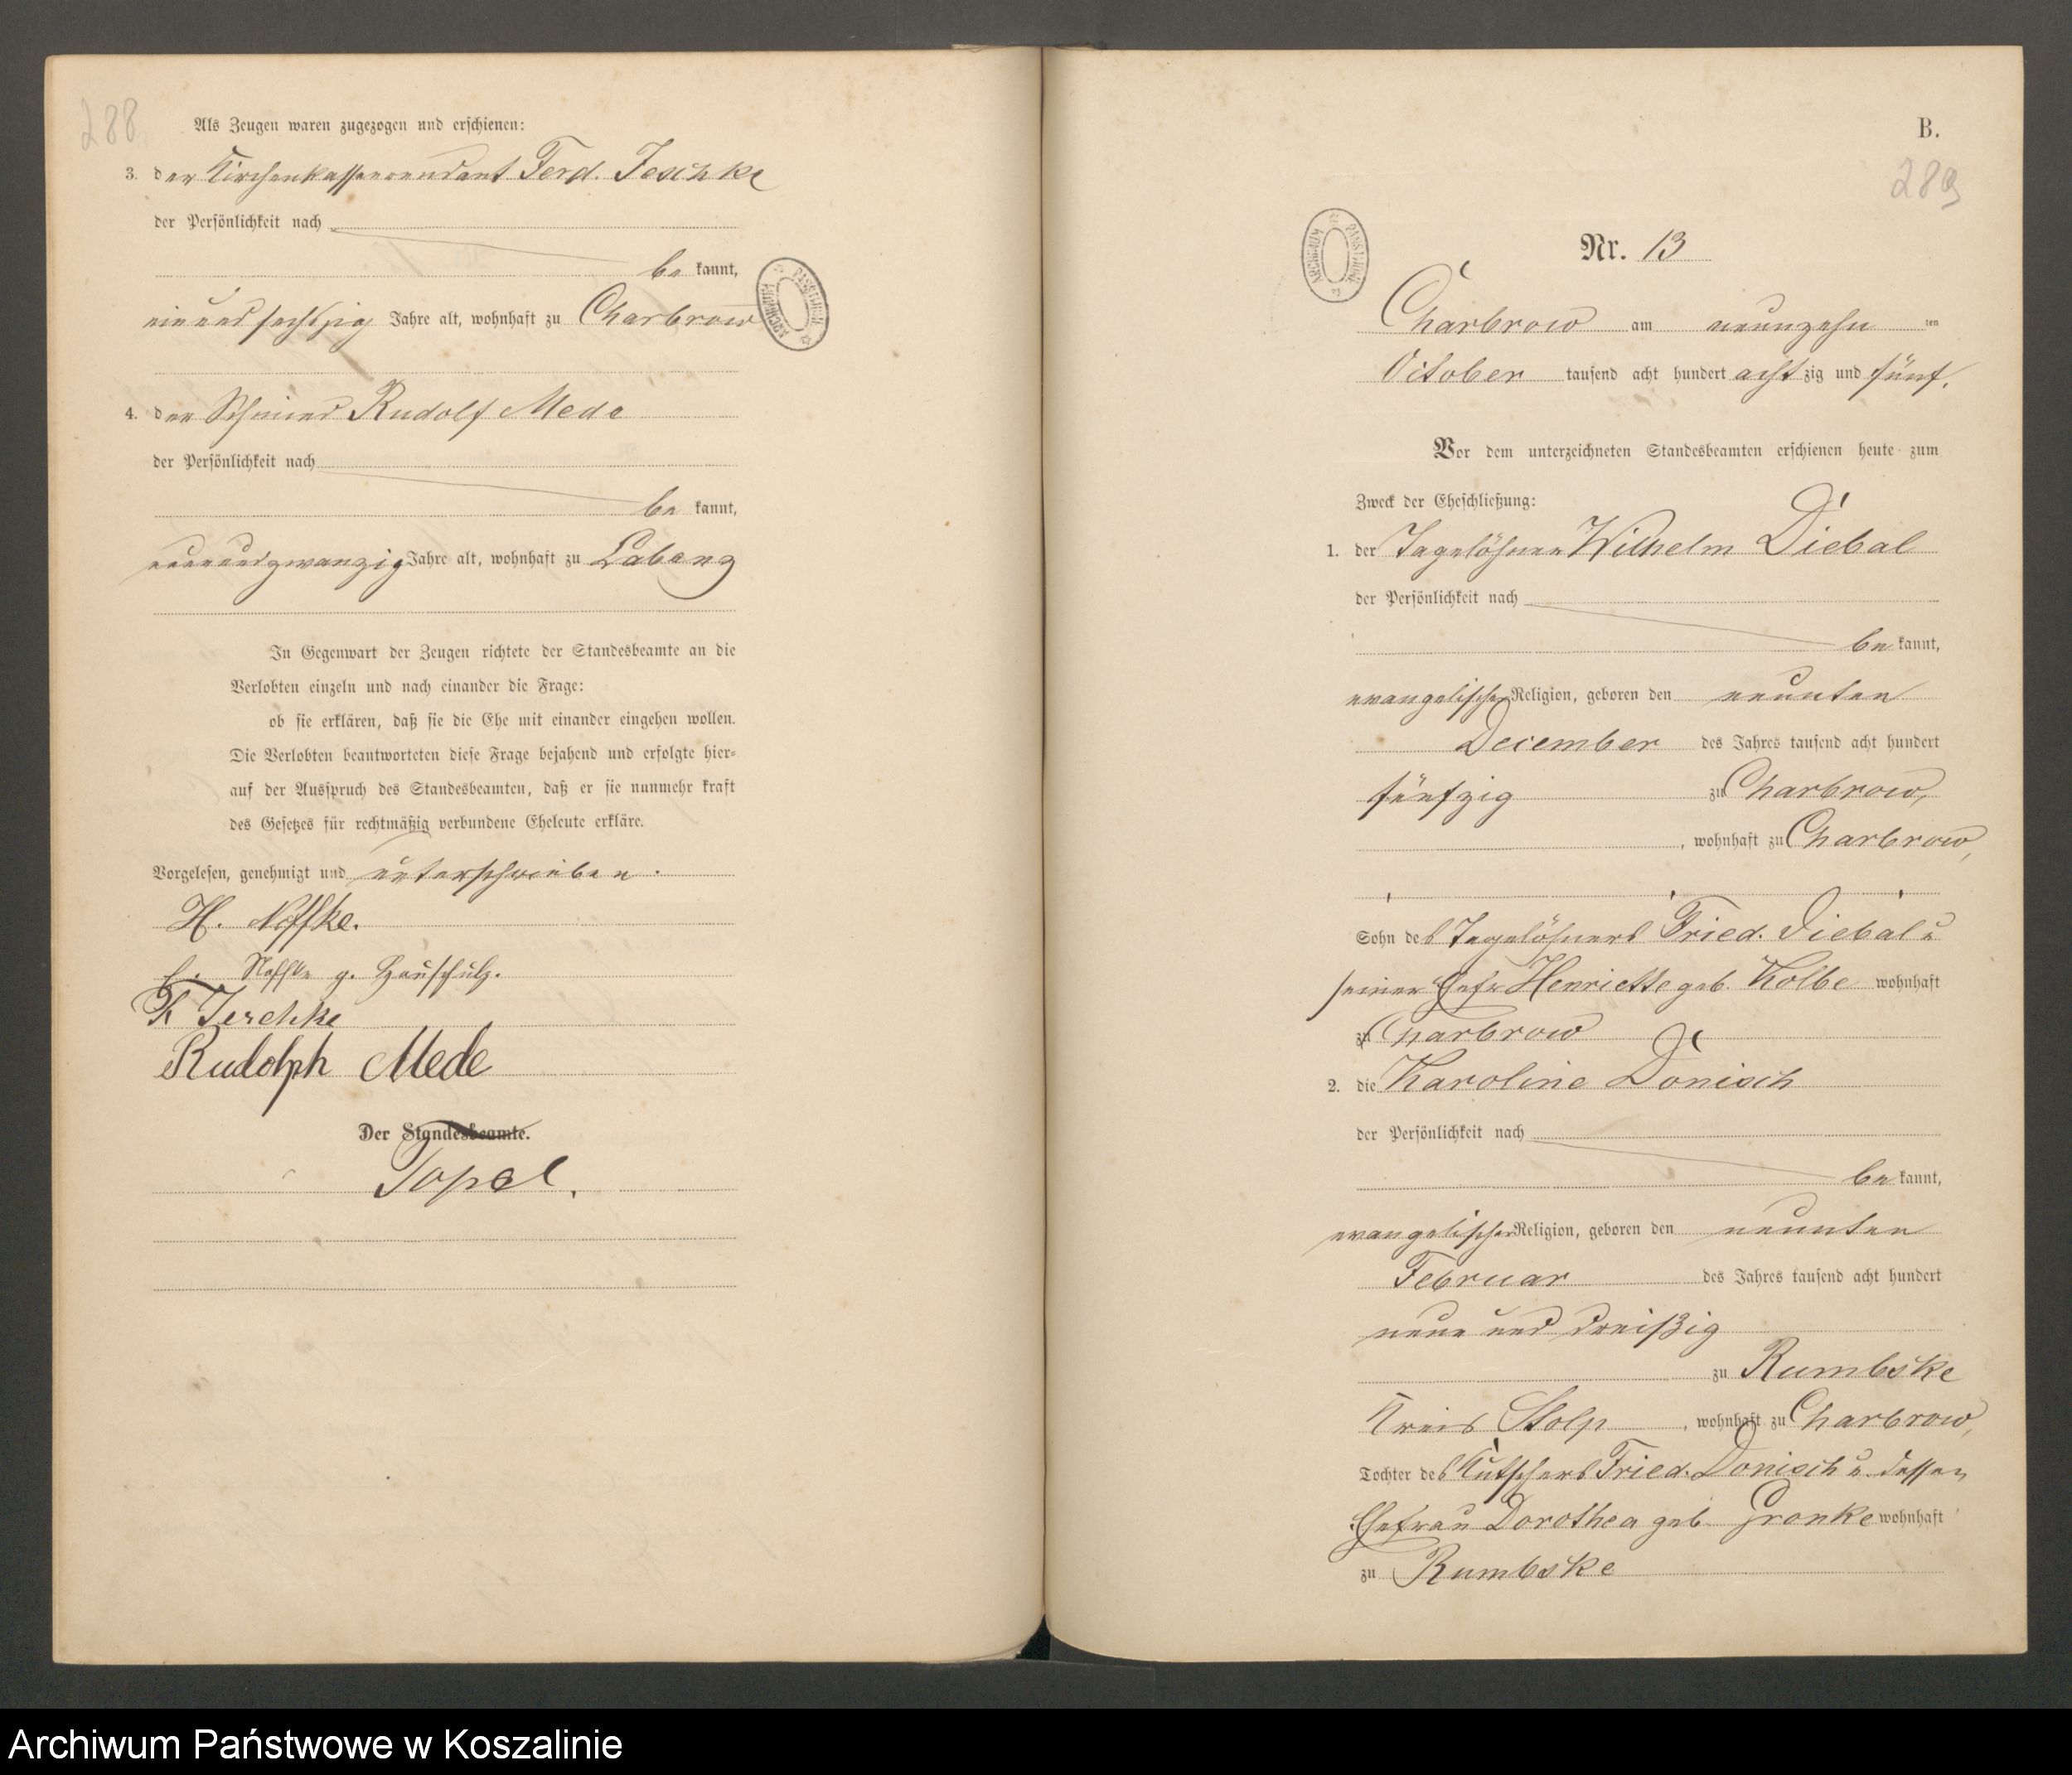 288
Als Zeugen waren zugezogen und erschienen:
3. der Kirchenkassenrendant Ferd. Jeschke
der Persönlichkeit nach
be kannt,
einundsechszig Jahre alt, wohnhaft zu Charbrow
4. der Schmied Rudolf Mede
der Persönlichkeit nach
be kannt,
neunundzwanzig Jahre alt, wohnhaft zu Labenz
In Gegenwart der Zeugen richtete der Standesbeamte an die
Verlobten einzeln und nach einander die Frage:
ob sie erklären, daß sie die Ehe mit einander eingehen wollen.
Die Verlobten beantworteten diese Frage bejahend und erfolgte hier-
auf der Ausspruch des Standesbeamten, daß er sie nunmehr kraft
des Gesetzes für rechtmäßig verbundene Eheleute erkläre.
Vorgelesen, genehmigt und unterschrieben.
H. Noffke.
Noffke g.
F Jeschke
Rudolph Mede
Der Standesbeamte.
Topel.
ARCHIWUM PAŃSTWOWE
B.
289
ARCHIWUM PAŃSTWOWE
Nr. 13
Charbrow am neunzehn ten
October tausend acht hundert acht zig und fünf.
Vor dem unterzeichneten Standesbeamten erschienen heute zum
Zweck der Eheschließung:
1. der Tagelöhner Wilhelm Diebal
der Persönlichkeit nach
be kannt,
evangelischer Religion, geboren den neunten
December des Jahres tausend acht hundert
fünfzig zu Charbrow,
, wohnhaft zu Charbrow,
Sohn des Tagelöhners Fried. Diebal u
seiner Ehefr Henriette geb. Kolbe wohnhaft
zu Charbrow
2. die Karoline Donisch
der Persönlichkeit nach
be kannt,
evangelischer Religion, geboren den neunten
Februar des Jahres tausend acht hundert
neun und dreißig
zu Rumbske
Kreis Stolp , wohnhaft zu Charbrow,
Tochter des Kutschers Fried. Donisch u. dessen
Ehefrau Dorothea geb. Gronke wohnhaft
zu Rumbske
Archiwum Państwowe w Koszalinie